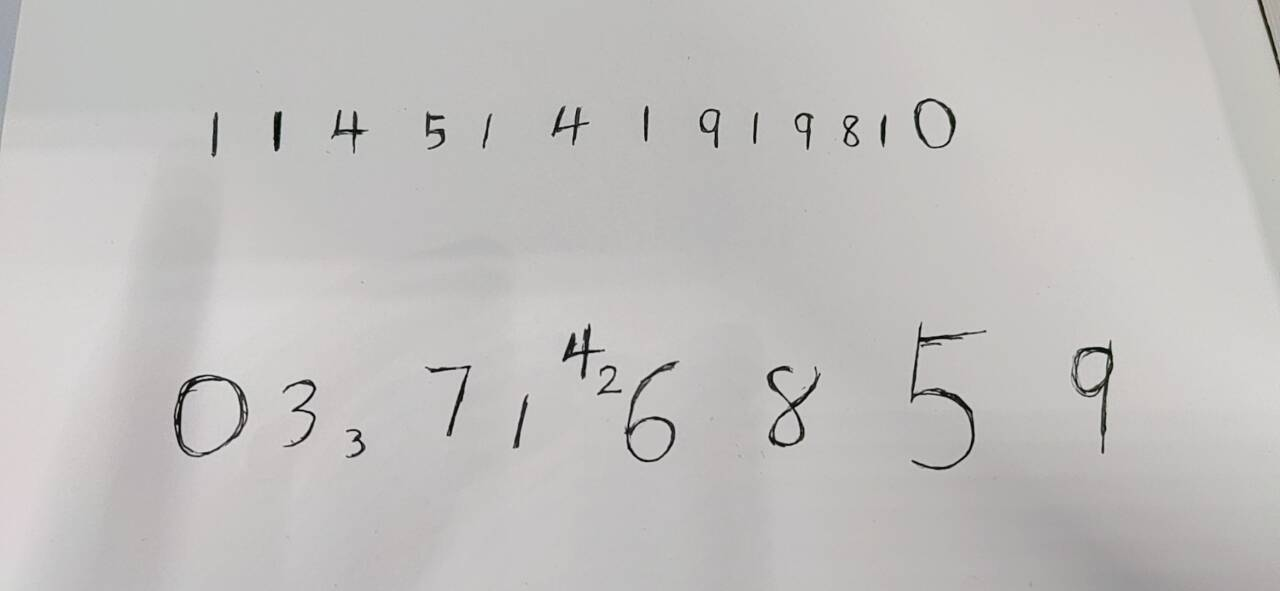 1 1 4 5 1 4 1 9 1 9 8 1 0
0 3 3 7 1 4 2 6 8 5 9